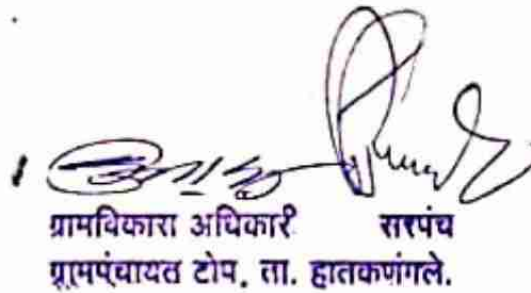 ग्रामविकारा अधिकारी सरपंच
ग्रामपंचायत टोप, ता. हातकणंगले.